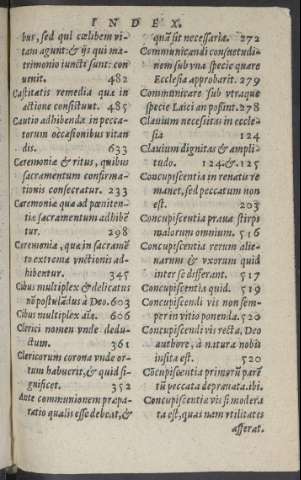 INDEX.
bus, sed qui cœlibem vi-
tam agunt: & ijs qui ma-
trimonio iuncti sunt: con
uenit. 482
Castitatis remedia quæ in
actione consistunt. 485
Cautio adhibenda in pecca-
torum occasionibus vitan
dis. 633
Ceremoniæ & ritus, quibus
sacramentum confirma-
tionis consecratur. 233
Ceremoniæ quæ ad pœniten-
tiæ sacramentum adhibē
tur. 298
Ceremoniæ, quæ in sacramē
to extremæ vnctionis ad-
hibentur. 345
Cibus multiplex & delicatus
nō postulādus à Deo. 603
Cibus multiplex aīæ. 606
Clerici nomen vnde dedu-
ctum. 361
Clericorum corona vnde or-
tum habuerit, & quid si-
gnificet. 352
Ante communionem præpa-
ratio qualis esse debeat, &
quā sit necessaria. 272
Communicandi consuetudi-
nem sub vna specie quare
Ecclesia approbarit. 279
Communicare sub vtraque
specie Laici an possint. 278
Clauium necessitas in eccle-
sia 124
Clauium dignitas & ampli-
tudo. 124. & .125
Concupiscentia in renatis re
manet, sed peccatum non
est. 203
Concupiscentia praua stirps
malorum omnium. 516
Concupiscentia rerum alie-
narum & vxorum quid
inter se differant. 517
Concupiscentia quid. 519
Concupiscendi vis non sem-
per in vitio ponenda. 520
Concupiscendi vis recta, Deo
authore, à natura nobis
insita est. 520
Cōcupiscētia primorū parē
tū peccata deprauata. ibi.
Concupiscentiæ vis si modera
ta est, quas nam vtilitates
afferat.